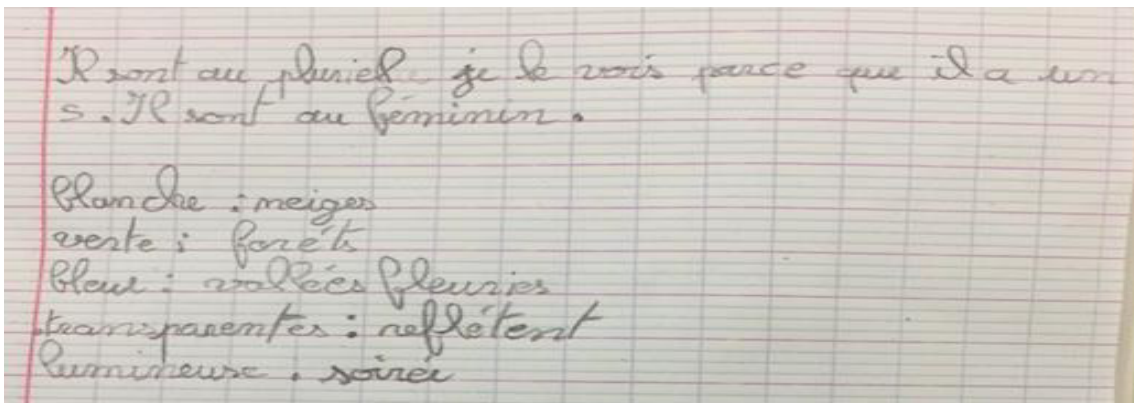 Il sont au pluriel je le vois parce que il a un
s. Il sont au féminin.
blanche : neiges
verte : forêts
bleue : vallées fleuries
transparentes : reflétent
lumineuse . soirée